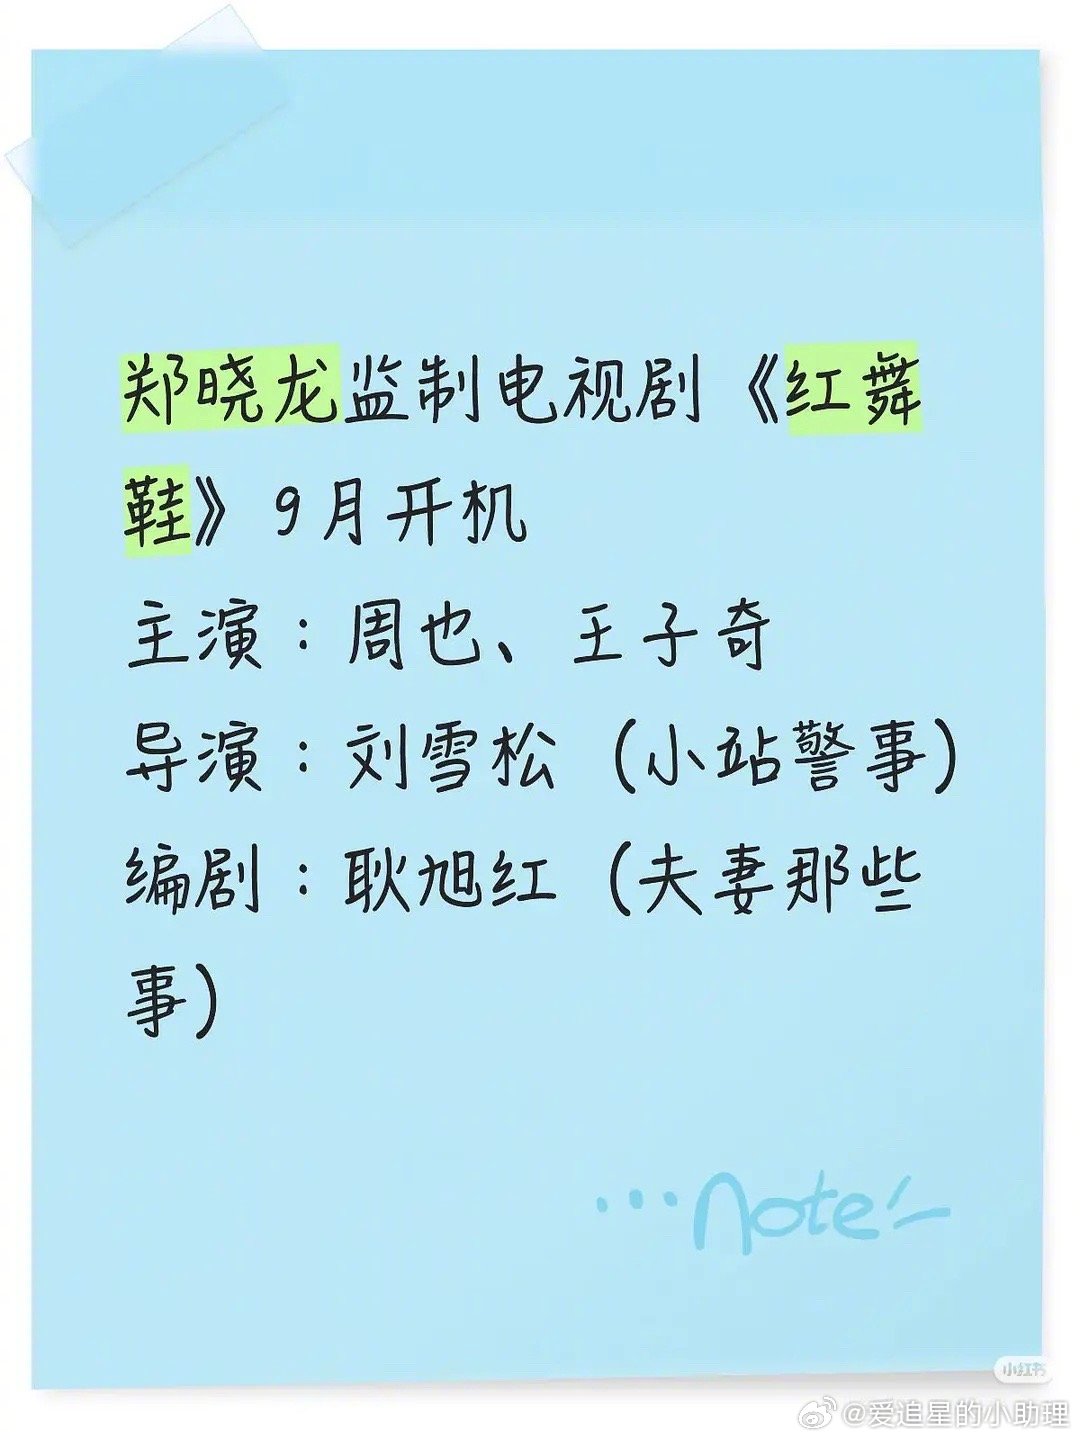 郑晓龙监制电视剧《红舞
鞋》9月开机
主演：周也、王子奇
导演：刘雪松（小站警事）
编剧：耿旭红（夫妻那些
事）
...note
小红书
@爱追星的小助理